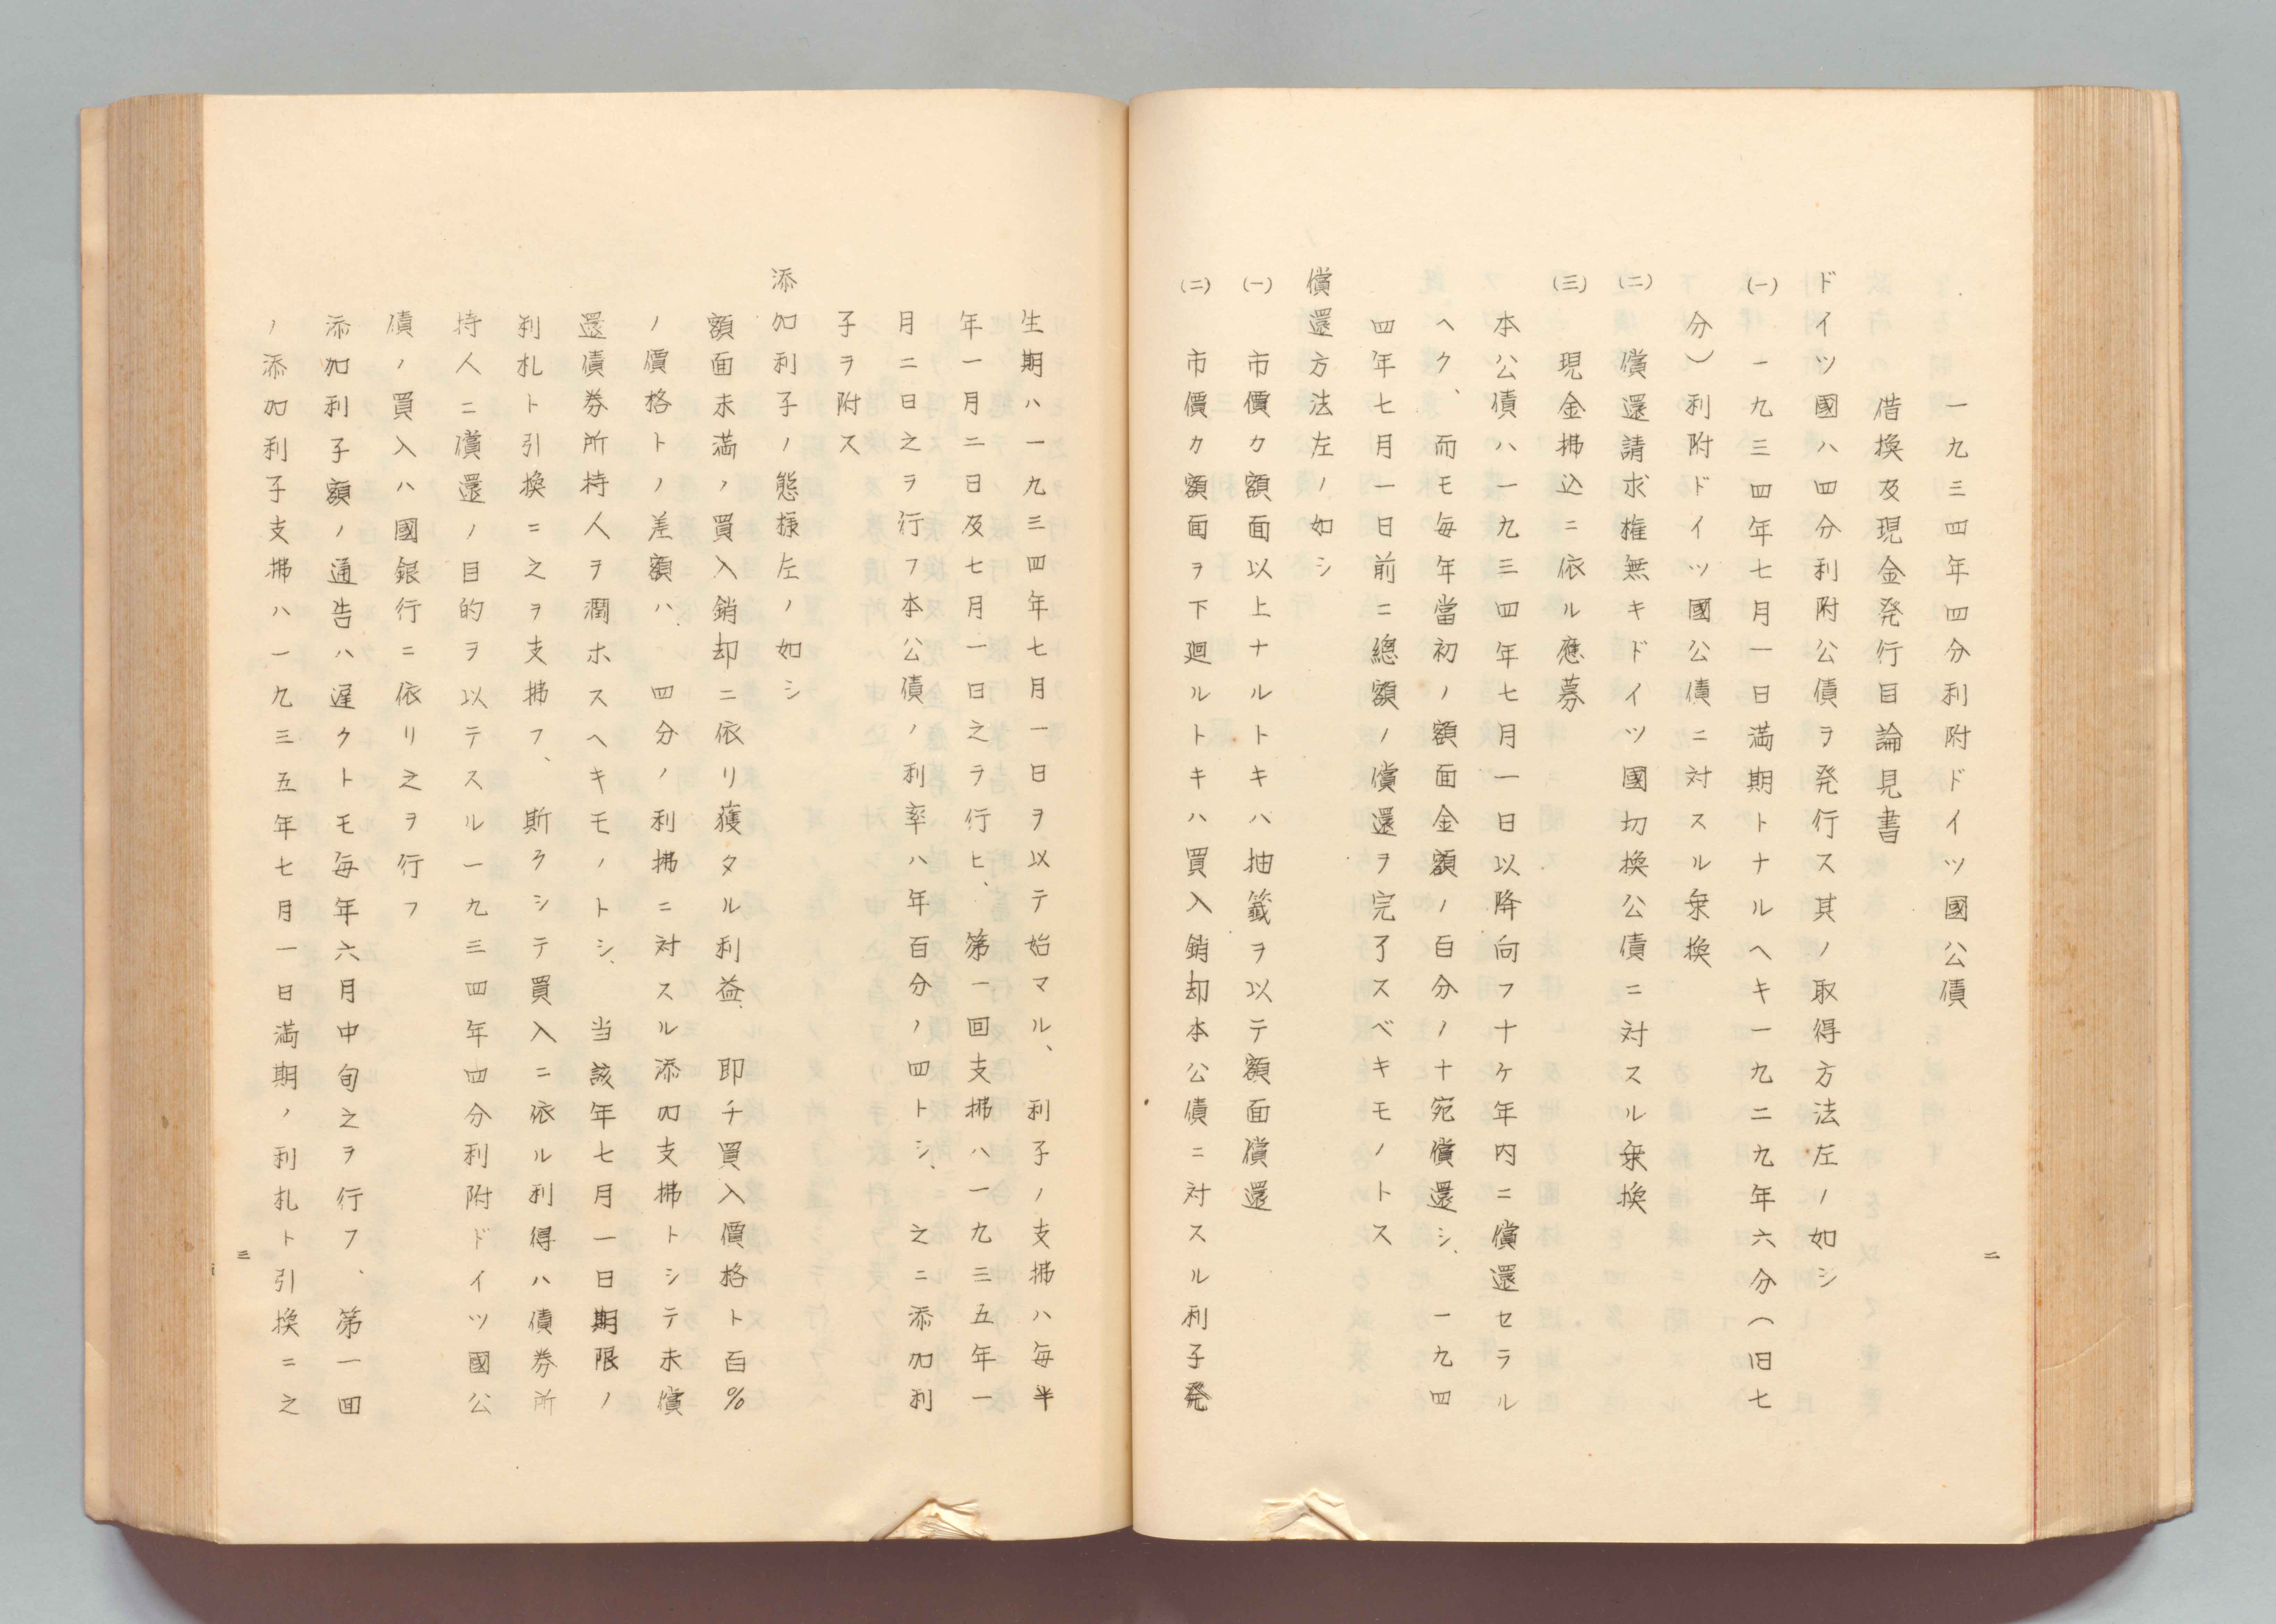 一九三四年四分利附ドイツ國公債
借換及現金発行目論見書
ドイツ國ハ四分利附公債ヲ発行ス其ノ取得方法左ノ如シ
(一) 一九三四年七月一日満期トナルヘキ一九二九年六分(旧七
分)利附ドイツ國公債ニ対スル乗換
(二) 償還請求権無キドイツ國切換公債ニ対スル乗換
(三) 現金拂込ニ依ル應募
本公債ハ一九三四年七月一日以降向フ十ケ年内ニ償還セラル
ヘク、而モ毎年當初ノ額面金額ノ百分ノ十宛償還シ、一九四
四年七月一日前ニ總額ノ償還ヲ完了スベキモノトス
償還方法左ノ如シ
(一) 市價カ額面以上ナルトキハ抽籤ヲ以テ額面償還
(二) 市價カ額面ヲ下廻ルトキハ買入銷却本公債ニ対スル利子発
二
生期ハ一九三四年七月一日ヲ以テ始マル、利子ノ支拂ハ毎半
年一月二日及七月一日之ヲ行ヒ、第一回支拂ハ一九三五年一
月二日之ヲ行フ本公債ノ利率ハ年百分ノ四トシ、之ニ添加利
子ヲ附ス
添加利子ノ態様左ノ如シ
額面未満ノ買入銷却ニ依リ獲タル利益、即チ買入價格ト百%
ノ價格トノ差額ハ、四分ノ利拂ニ対スル添加支拂トシテ未償
還債券所持人ヲ潤ホスヘキモノトシ、当該年七月一日期限ノ
利札ト引換ニ之ヲ支拂フ、斯クシテ買入ニ依ル利得ハ債券所
持人ニ償還ノ目的ヲ以テスル一九三四年四分利附ドイツ國公
債ノ買入ハ國銀行ニ依リ之ヲ行フ
添加利子額ノ通告ハ遅クトモ毎年六月中旬之ヲ行フ、第一回
ノ添加利子支拂ハ一九三五年七月一日満期ノ利札ト引換ニ之
三